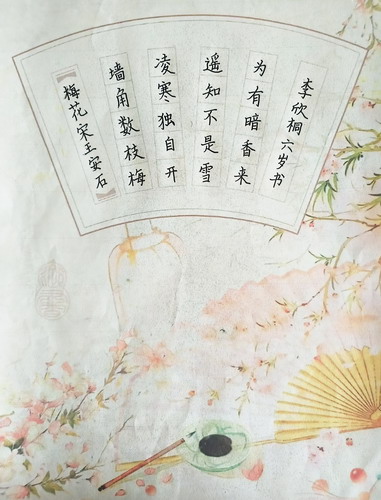 梅花 宋 王安石
墙角数枝梅
凌寒独自开
遥知不是雪
为有暗香来
李欣桐 六岁书